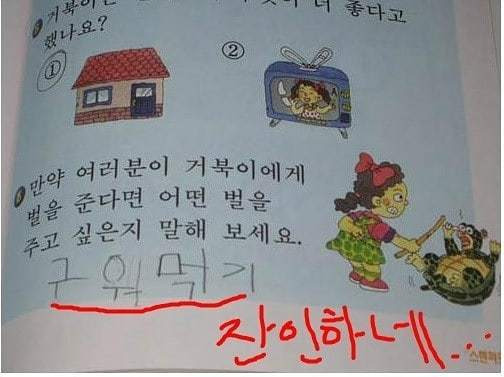 거북이는
더 좋다고
했나요?
① ②
만약 여러분이 거북이에게
벌을 준다면 어떤 벌을
주고 싶은지 말해 보세요.
구워먹기
잔인하네...